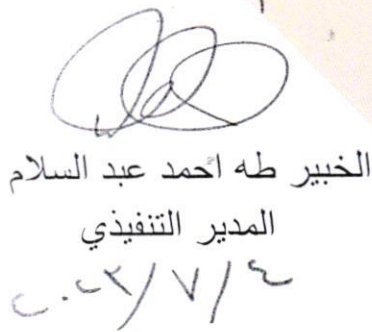 الخبير طه احمد عبد السلام
المدير التنفيذي
٢٠٢٣/٧/٤